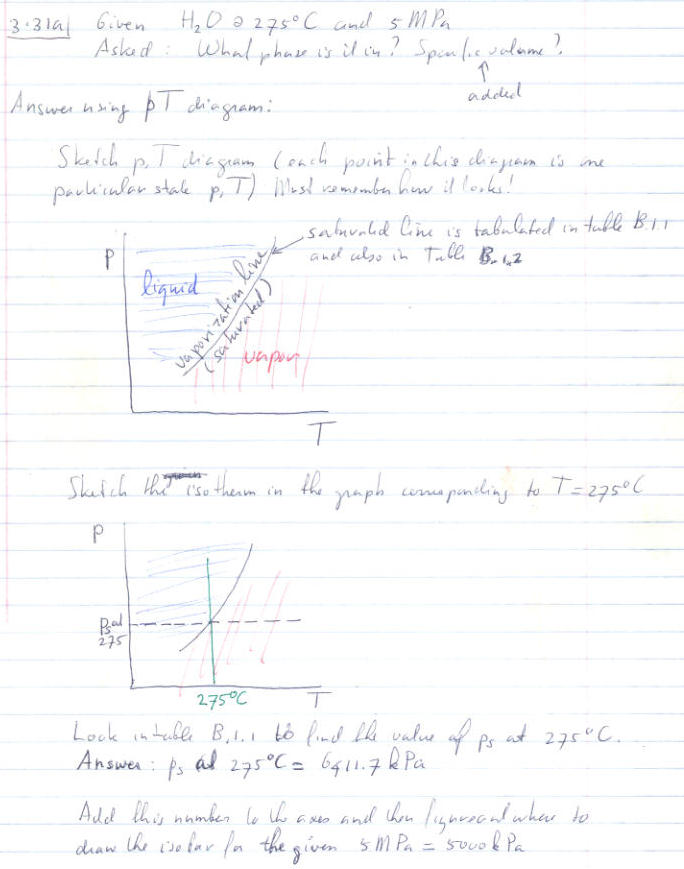 3.31a) Given H₂O @ 275°C and 5 MPa
Asked : What phase is it in? Specific volume?
added
Answer using pT diagram:
Sketch p, T diagram (each point in this diagram is one
particular state p, T) Must remember how it looks!
saturated line is tabulated in table B.1.1
and also in Table B.1.2
P
liquid
vaporization line
(saturated)
vapor
T
Sketch the isotherm in the graph corresponding to T = 275°C
P
Ps at
275
275°C
T
Look in table B.1.1 to find the value of ps at 275°C.
Answer : ps at 275°C = 6411.7 kPa
Add this number to the axes and then figure out where to
draw the isobar for the given 5 MPa = 5000 kPa